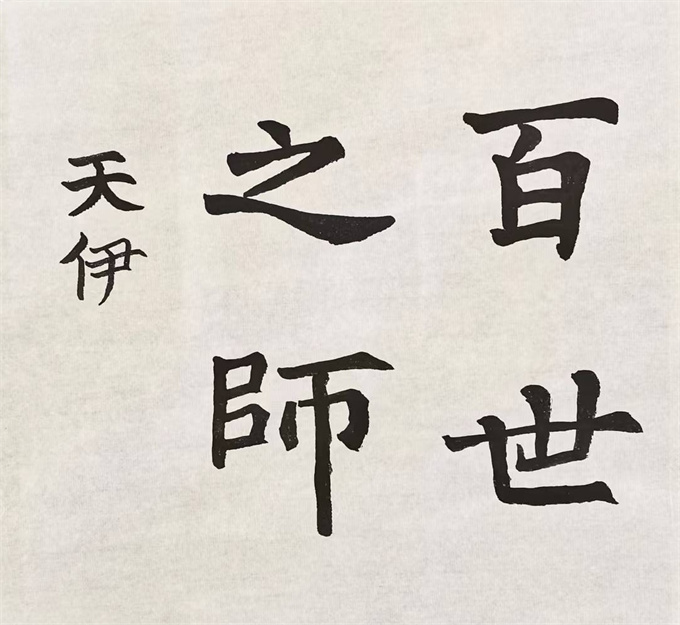 百世
之師
天伊